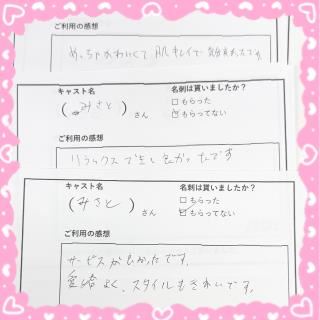 ご利用の感想
めっちゃかわいくて 肌キレイで
キャスト名
名刺は貰いましたか?
(みさと)さん
□もらった
☑もらってない
ご利用の感想
リラックスできて
キャスト名
名刺は貰いましたか?
(みさと)さん
□もらった
☑もらってない
ご利用の感想
サービスがよかったです。
愛嬌よく、スタイルもきれいです。